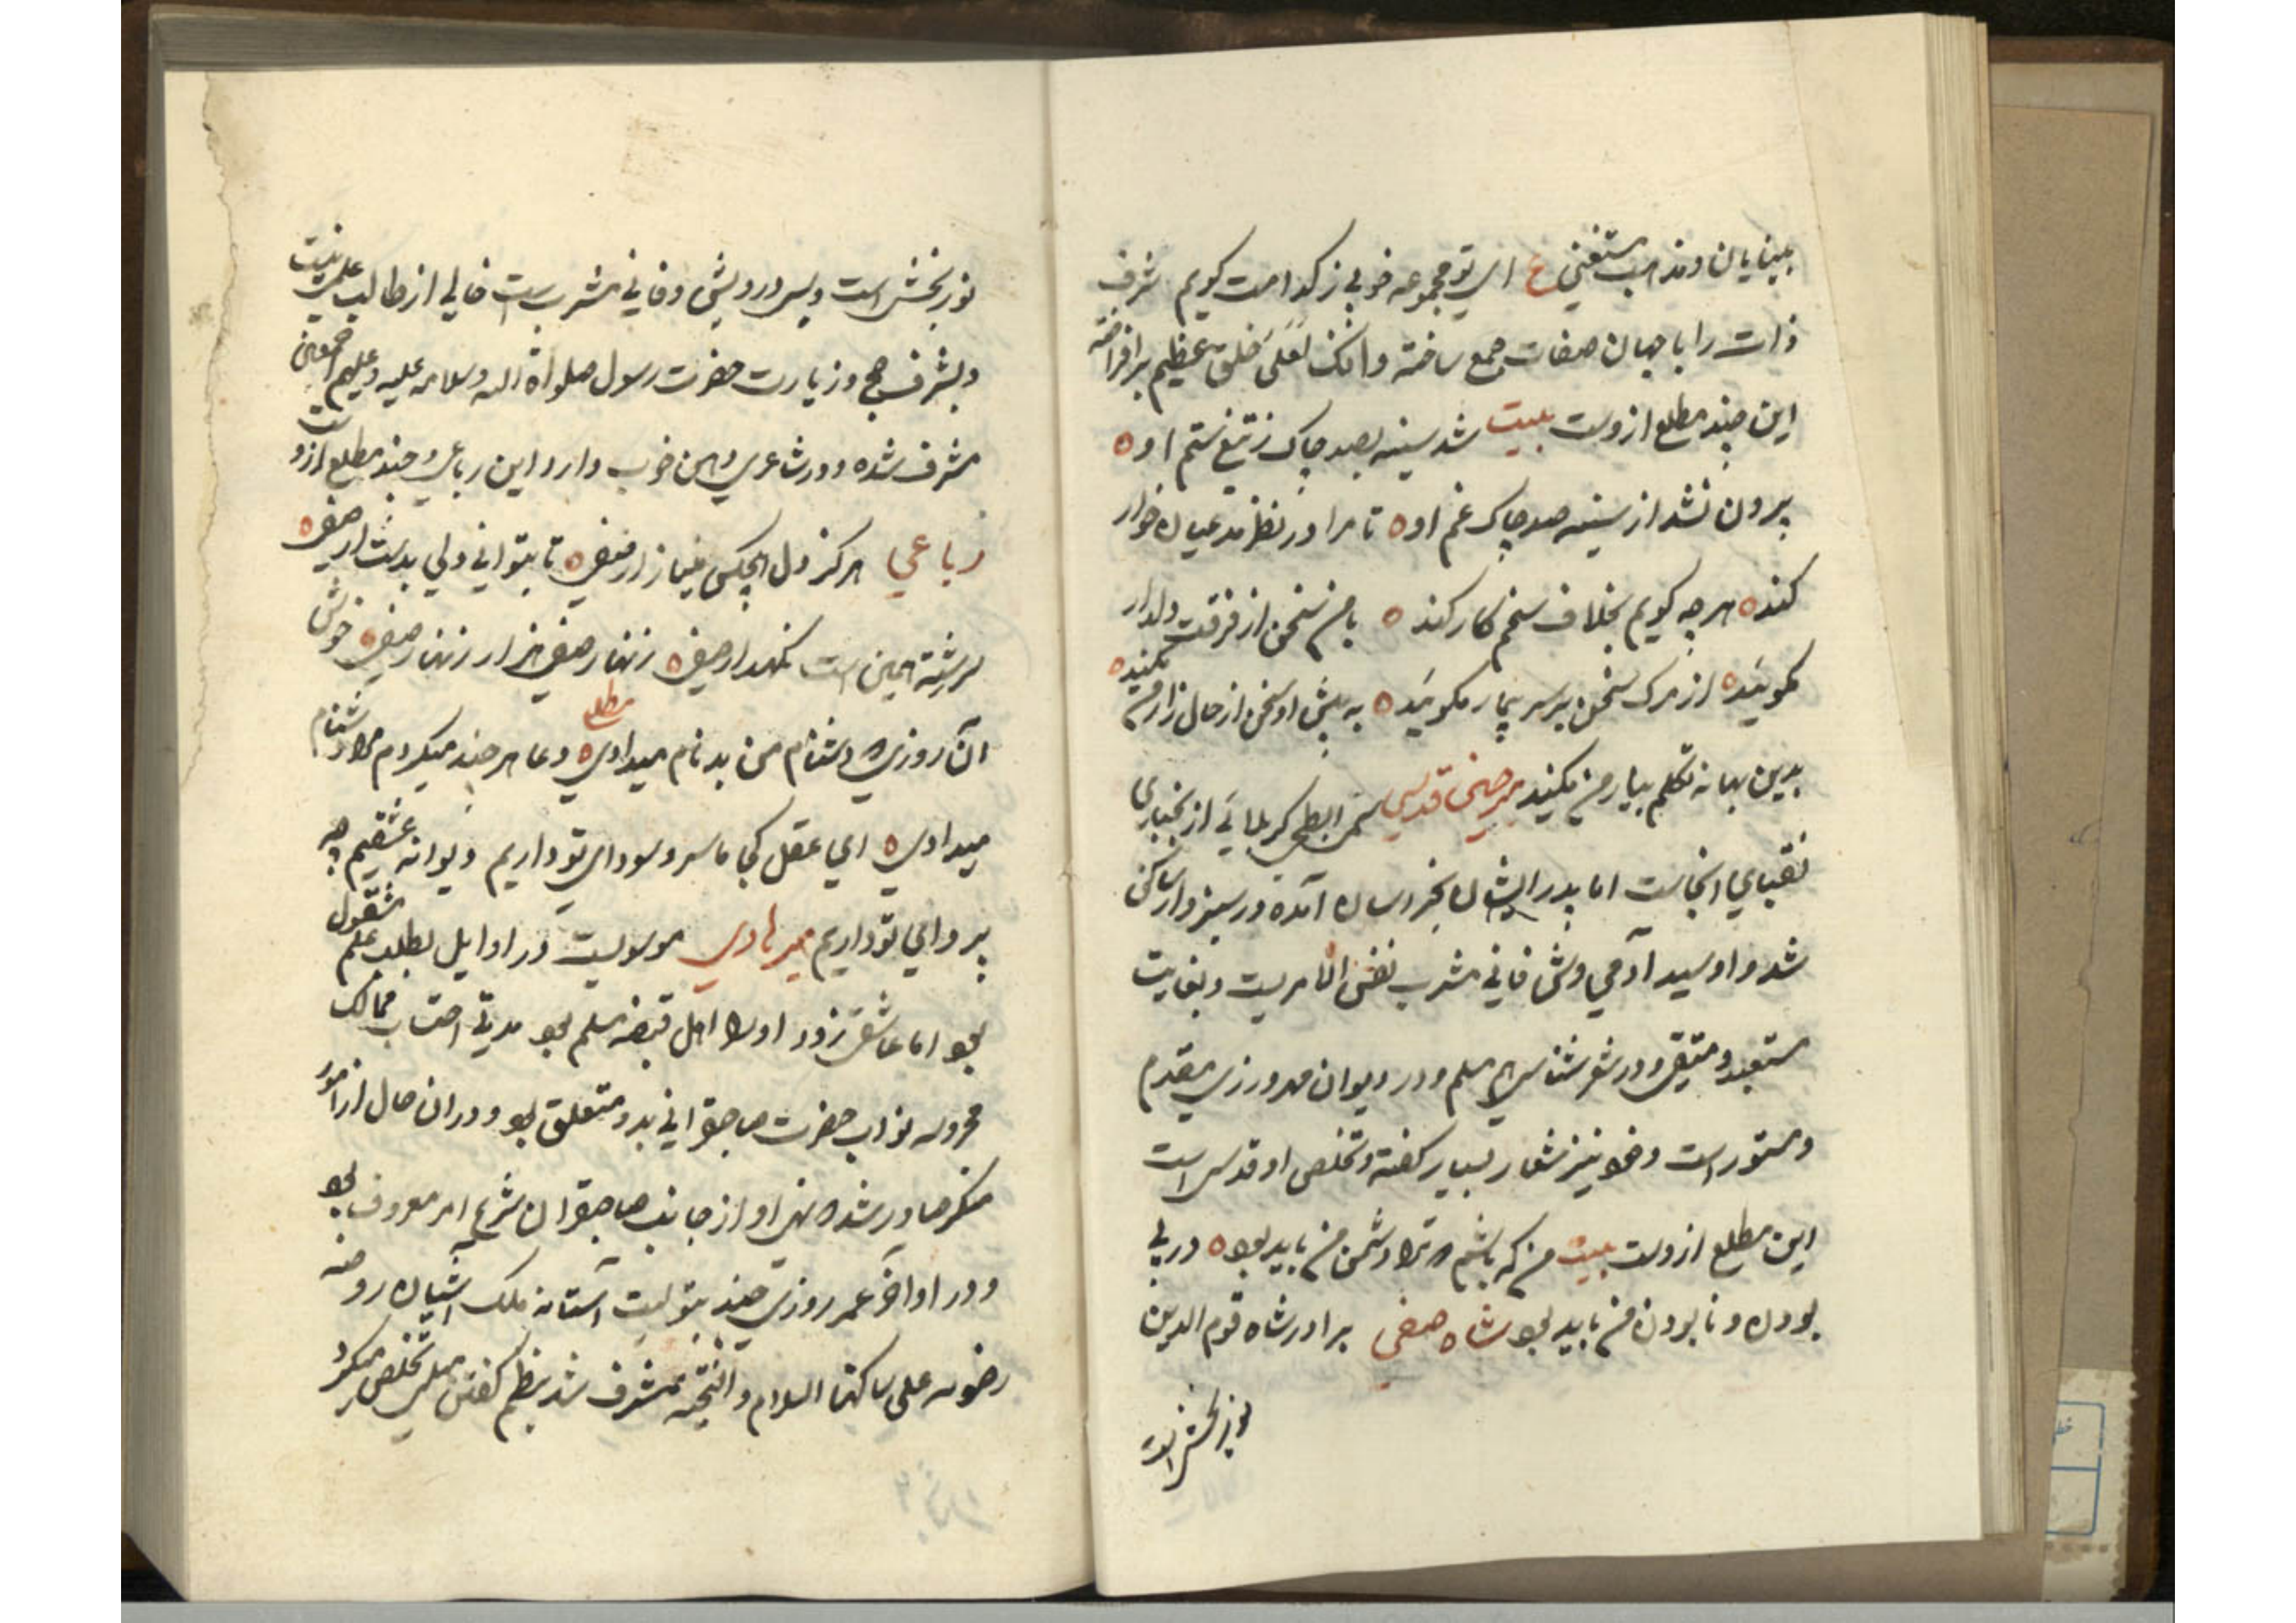 بینایان و مذاهب مستغنی ع ای تو مجموعه خوبی ز کدامت کویم شرف
ذات را با جهان صفات جمع ساخته وانک لعلی خلق عظیم برافراخته
این چند مطلع ازوست بیت شد سینه بصد چاک ز تیغ ستم او ه
برون نشد از سینه صد چاک غم او ه تا مرا در نظر مدعیان خوار
کند ه هر چه کویم بخلاف سخنم کار کند ه با من سخن از فرقت دلدار
مکوئید ه از مرک سخن بر سر بیمار مکوئید ه به پیش او سخن از حال زار من مکنید ه
بدین بهانه تکلم بیار من مکنید میر حسن قدسی کربلائی از
نقبای انجاست اما پدر ایشان بخراسان آمده در سبزوار ساکن
شد و او سید آدمی وش فانی مشرب نفس الامریست و بغایت
مستعد و متقی و در شعر شناسی مسلم و در دیوان مهرورزی مقدم
و مستور است و خود نیز اشعار بسیار کفته و تخلص او قدسی است
این مطلع ازوست بیت من که باشم که ترا دشمن من باید بود ه در پی
بودن و نابودن من باید بود شاه صفی برادر شاه قوم الدین
نوربخش است
نوربخش است و بسی درویش و فانی مشرب است خالی از طالب علمی نیست
و بشرف حج و زیارت حضرت رسول صلواة الله و سلامه علیه و علیهم اجمعین
مشرف شده و در شاعری ذهن خوب دارد این رباعی و چند مطلع ازوست
رباعی هرکز دل هیچکس میازار صفی ه تا بتوانی دلی بدست آر صفی ه
سر رشته همین است نکهدار صفی ه زنهار صفی هزار زنهار صفی ه خوش
مطلع
آن روزی که دشنام من بدنام میدادی ه دعا هر چند میکردم مرا دشنام
میدادی ه ای عقل کجا ما سر و سودای تو داریم دیوانه عشقیم چه
پروای تو داریم میر هادی موسویست در اوایل بطلب علم مشغول
بود اما عاشق زود او را اهل قبضه مسلم بود مدتی احتساب ممالک
محروسه نواب حضرت صاحبقرانی بدو متعلق بود و در ان حال از امور
منکر صادر شد نهی او از جانب صاحبقران شرع امر معروف بود
و در اواخر عمر روزی چند بتولیت آستانه ملک آشیان روضه
رضویه علی ساکنها السلام و التحیه مشرف شد بنظم کفتن تخلص میکرد